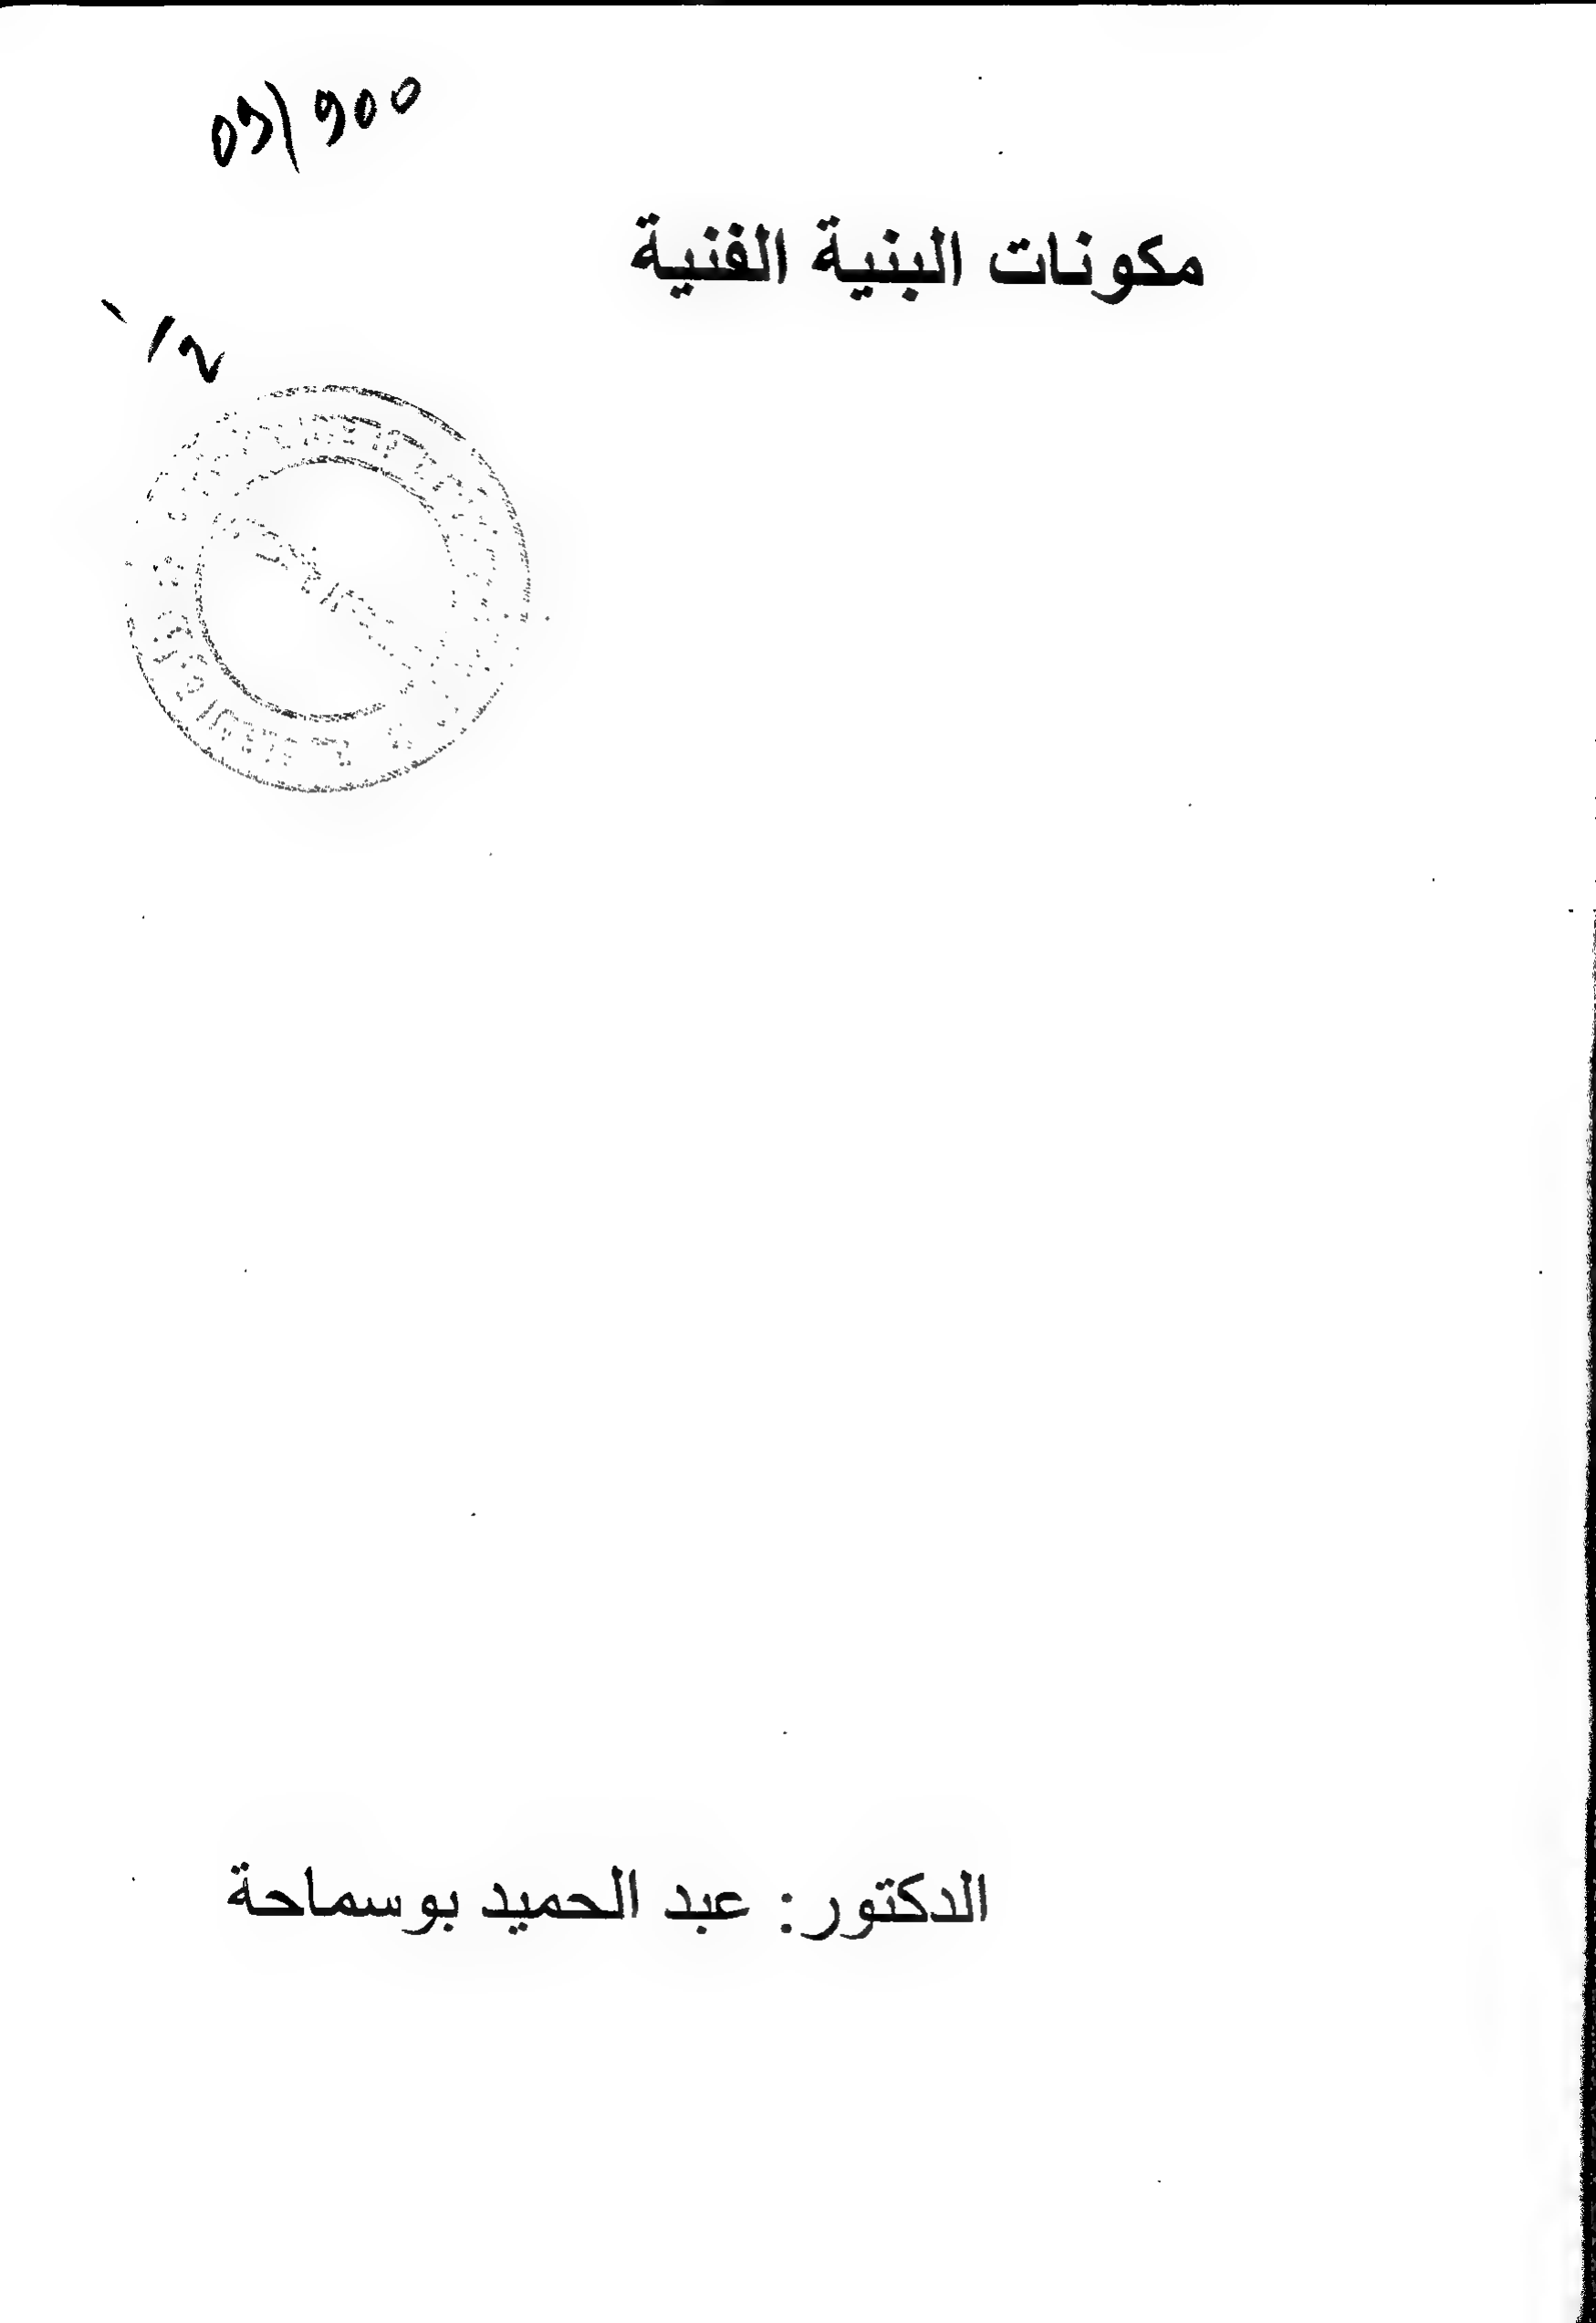 09/900
مكونات البنية الفنية
الدكتور: عبد الحميد بوسماحة